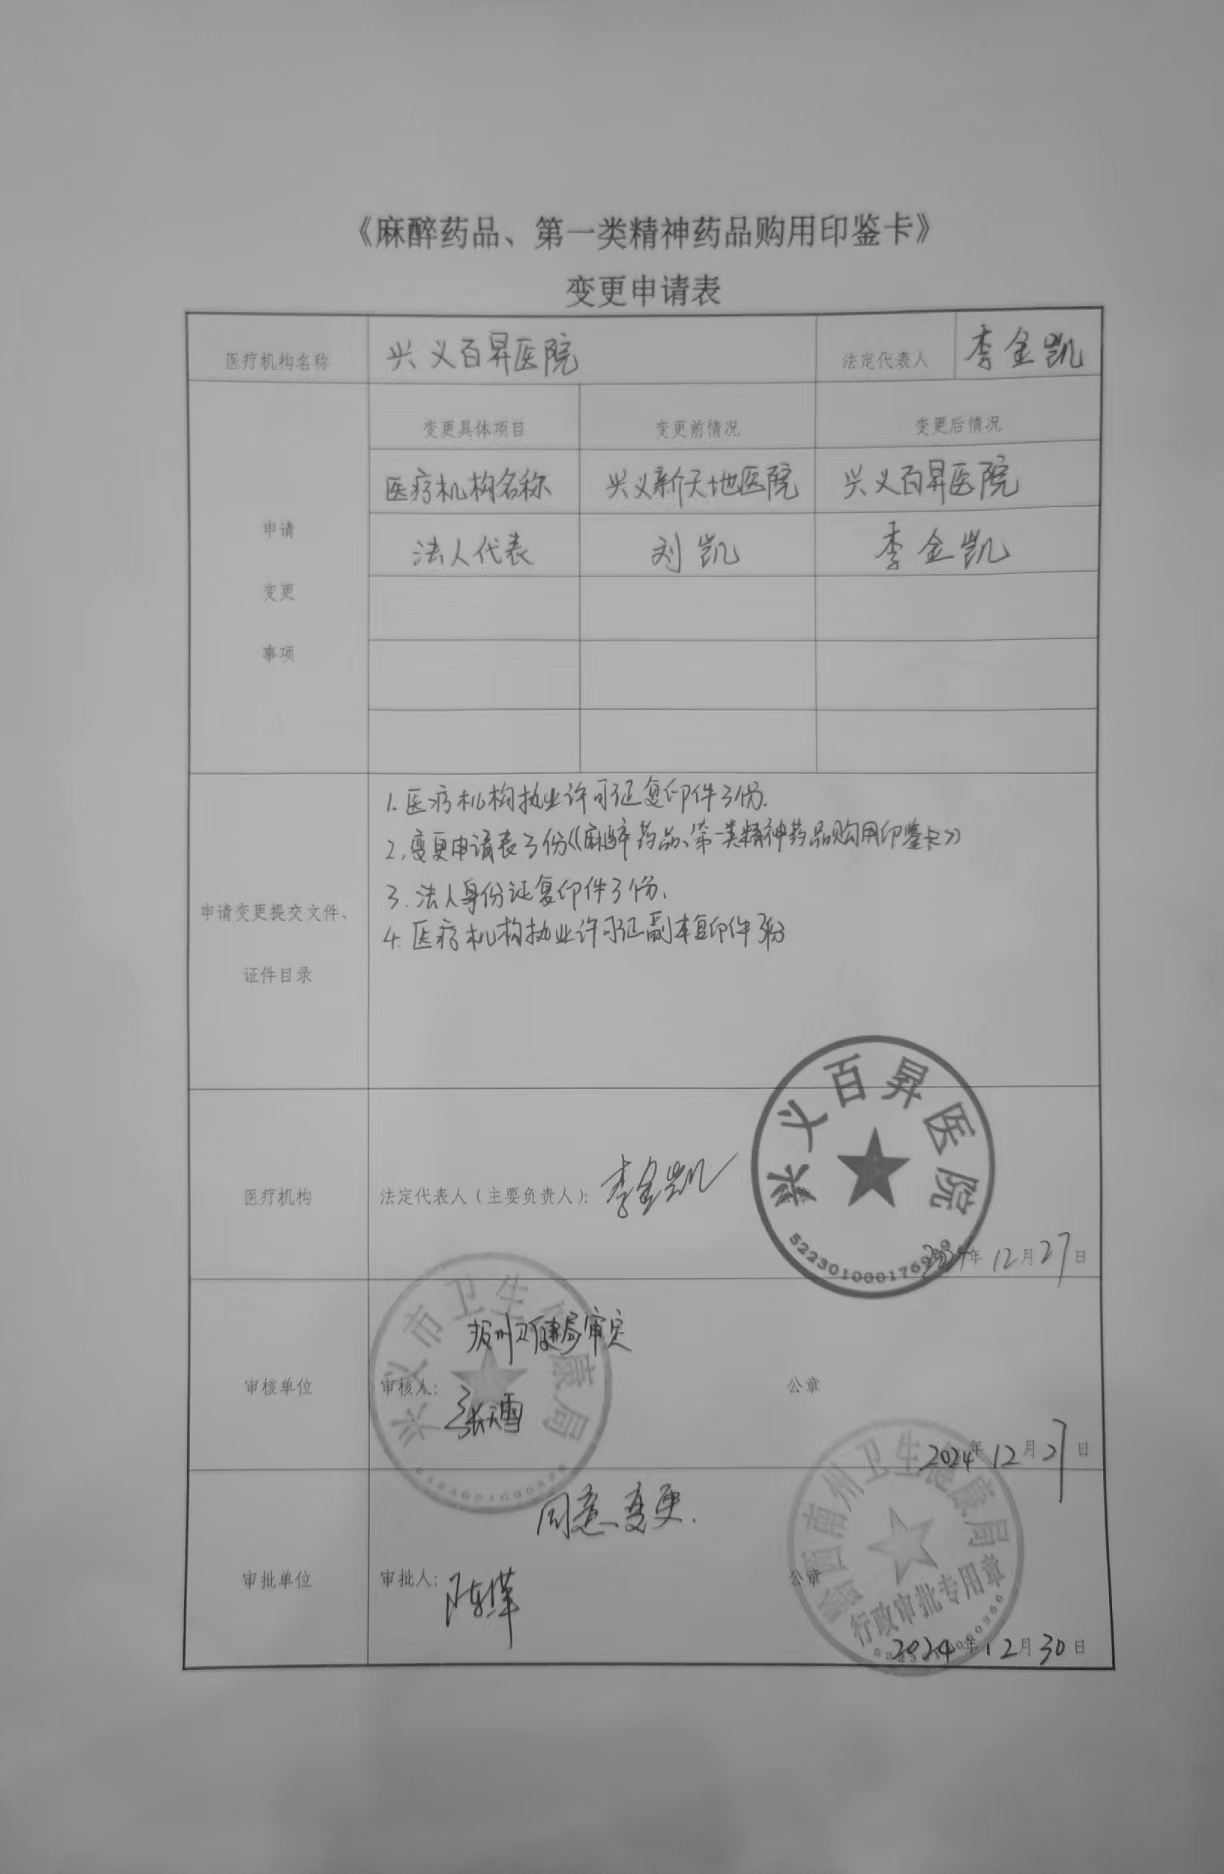 《麻醉药品、第一类精神药品购用印鉴卡》
变更申请表
医疗机构名称 兴义百昇医院 法定代表人 李金凯
申请变更事项
变更具体项目 变更前情况 变更后情况
医疗机构名称 兴义新天地医院 兴义百昇医院
法人代表 刘凯 李金凯
申请变更提交文件、
证件目录
1. 医疗机构执业许可证复印件3份.
2. 变更申请表3份《麻醉药品、第一类精神药品购用印鉴卡》
3. 法人身份证复印件3份、
4. 医疗机构执业许可证副本复印件3份
医疗机构 法定代表人（主要负责人）： 李金凯
兴义百昇医院
2024年12月27日
兴义市卫生健康局
报州卫健局审定
审核单位 审核人： 张天雪 公章
2024年12月27日
同意变更.
审批单位 审批人： 公章
黔西南州卫生健康局
行政审批专用章
2024年12月30日